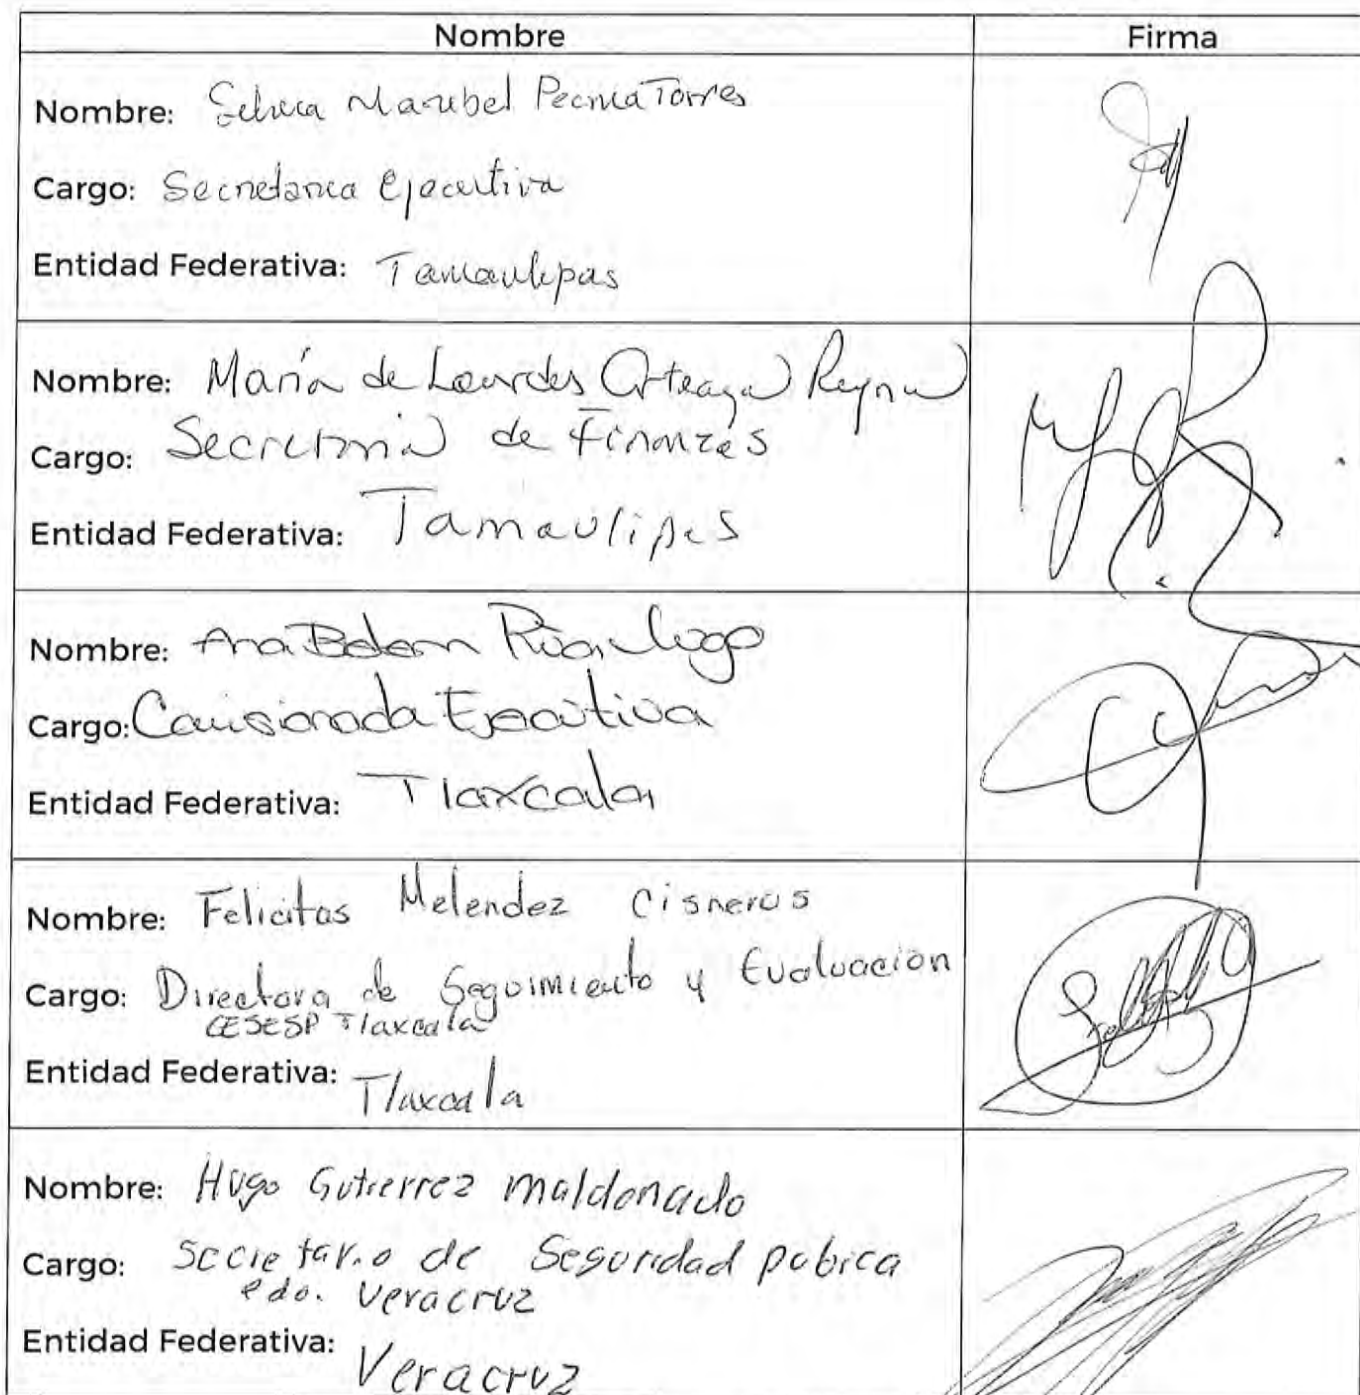 Nombre Firma
Nombre: Maribel Torres
Cargo: Secretaria Ejecutiva
Entidad Federativa: Tamaulipas
Nombre: María de Lourdes Arteaga Reyna
Cargo: Secretaria de Finanzas
Entidad Federativa: Tamaulipas
Nombre: Ana Belem Lugo
Cargo: Comisionada Ejecutiva
Entidad Federativa: Tlaxcala
Nombre: Felicitas Melendez Cisneros
Cargo: Directora de Seguimiento y Evaluacion
CESESP Tlaxcala
Entidad Federativa: Tlaxcala
Nombre: Hugo Gutierrez Maldonado
Cargo: Secretario de Seguridad pubica
edo. Veracruz
Entidad Federativa: Veracruz